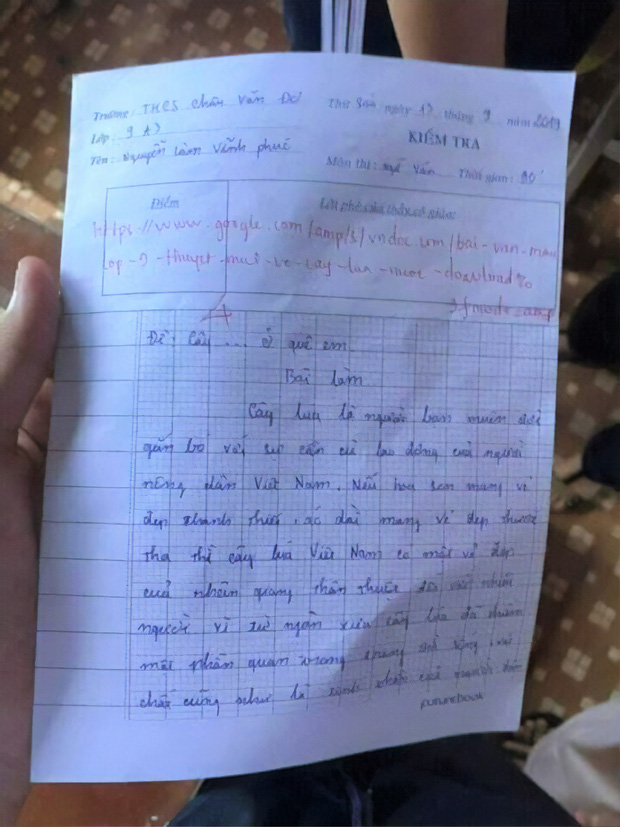 Trường: THCS Chân Văn
Lớp: 9 A
Tên: Nguyễn Lâm Vĩnh phúc
Thứ Sáu ngày 13 tháng 9 năm 2019
KIỂM TRA
Môn thi: Ngữ Văn Thời gian: 90'
Điểm
Lời phê của
https://www.google.com/amp/s/vndoc.com/bai-van-mau
lop-9-thuyet-mui-ve-cay-lua-nuoc-download%
3fmode=amp
Đề: Cây ... ở quê em
Bài làm
Cây lua là người bạn muôn đời
gắn bó với sự cần cù lao động của người
nông dân Việt Nam. Nếu hoa sen mang vẻ
đẹp thanh thiết, áo dài mang vẻ đẹp thướt
tha thì cây luá Việt Nam có một vẻ đẹp
thân thuộc
người vì từ ngàn xưa cây lúa đã
một phần quan trọng trong
chất cũng như là tinh thần của người
futurebook